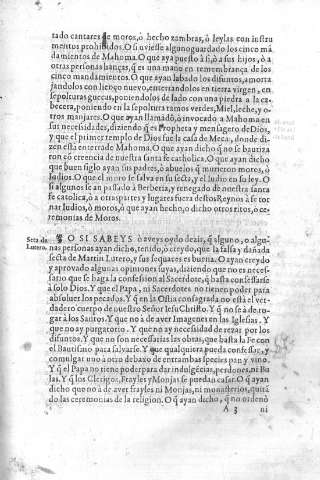 tado cantares de moros, ò hecho zambras, ò leylas con instru
mentos prohibidos. O si uviesse alguno guardado los cinco mã
damientos de Mahoma. O que aya puesto à si, ò a sus hijos, ò a
otras personas hanças, q̃ es una mano en remembrança de los
cinco mandamientos. O que ayan labado los difuntos, a morta
jandolos con lienço nuevo, enterrandolos en tierra virgen, en
sepolturas guecas, poniendolos de lado con una piedra a la ca-
becera, poniendo en la sepoltura ramos verdes, Miel, leche, y o-
tros manjares. O que ayan llamado, ò invocado a Mahoma en
sus necessidades, diziendo q̃ es Propheta y mensagero de Dios,
y que el primer templo de Dios fue la casa de Meca, donde di-
zen esta enterrado Mahoma. O que ayan dicho q̃ no se bautiza
ron cõ creencia de nuestra santa fe catholica. O que ayan dicho
que buen siglo ayan sus padres, ò abuelos q̃ murieron moros, ò
Iudios. O que el moro se salva en su secta, y el Iudio en su ley. O
si algunos se an passado à Berberia, y renegado de nuestra santa
fe catolica, ò a otras partes y lugares fuera destos Reynos à se tor
nar Iudios, ò moros, ò que ayan hecho, o dicho otros ritos, ò ce-
remonias de Moros.
Seta de
Lutero.
O SI SABEYS ò aveys oydo dezir, q̃ alguno, o algu-
nas personas ayan dicho, tenido, ò creydo, que la falsa y dañada
secta de Martin Lutero, y sus sequaces es buena. O ayan creydo
y aprovado algunas opiniones suyas, diziendo que no es neces-
sario que se haga la confession al Sacerdote, q̃ basta confessarse
à solo Dios. Y que el Papa, ni Sacerdotes no tienen poder para
absolver los pecados. Y q̃ en la Ostia consagrada no està el ver-
dadero cuerpo de nuestro Señor Iesu Christo. Y q̃ no se à de ro-
gar à los Santos. Y que no à de aver Imagenes en las Iglesias. Y
que no ay purgatorio. Y que no ay necessidad de rezar por los
difuntos. Y que no son necessarias las obras, que basta la Fe con
el Bautismo para salvarse. Y que qualquiera pueda confessar, y
comulgar uno à otro debaxo de entrambas species pan y vino.
Y q̃ el Papa no tiene poder para dar indulgẽcias, perdones, ni Bu
las. Y q̃ los Clerigos, Frayles y Monjas se puedan casar. O q̃ ayan
dicho que no à de aver frayles ni Monjas, ni monasterios, quitã
do las ceremonias de la religion. O q̃ ayan dicho, q̃ no ordenò
A 3 ni